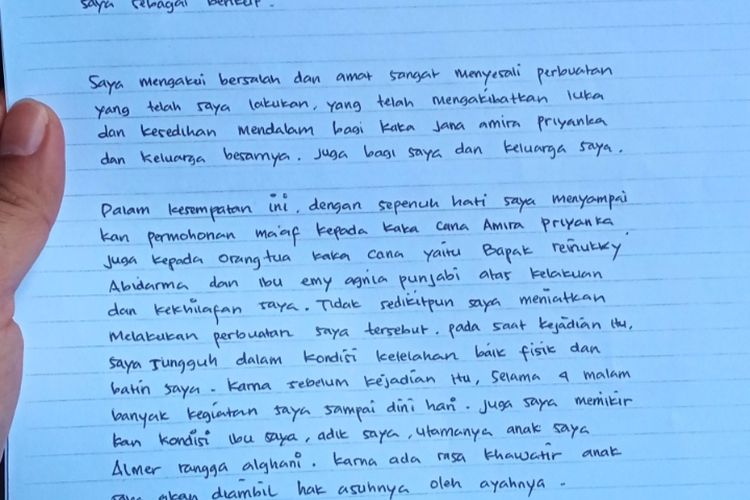 saya sebagai berikut.
Saya mengakui bersalah dan amat sangat menyesali perbuatan
yang telah saya lakukan, yang telah mengakibatkan luka
dan kesedihan mendalam bagi kaka jana amira priyanka
dan keluarga besarnya. juga bagi saya dan keluarga saya.
Dalam kesempatan ini, dengan sepenuh hati saya menyampai
kan permohonan ma'af kepada kaka cana Amira priyanka.
juga kepada orang tua kaka cana yaitu Bapak reinukky
Abidarma dan ibu emy agnia punjabi atas kelakuan
dan kekhilafan saya. Tidak sedikitpun saya meniatkan
melakukan perbuatan saya tersebut. pada saat kejadian itu,
saya sungguh dalam kondisi kelelahan baik fisik dan
batin saya. karna sebelum kejadian itu, selama 4 malam
banyak kegiatan saya sampai dini hari. juga saya memikir
kan kondisi ibu saya, adik saya, utamanya anak saya
Almer rangga alghani. karna ada rasa khawatir anak
saya akan diambil hak asuhnya oleh ayahnya.